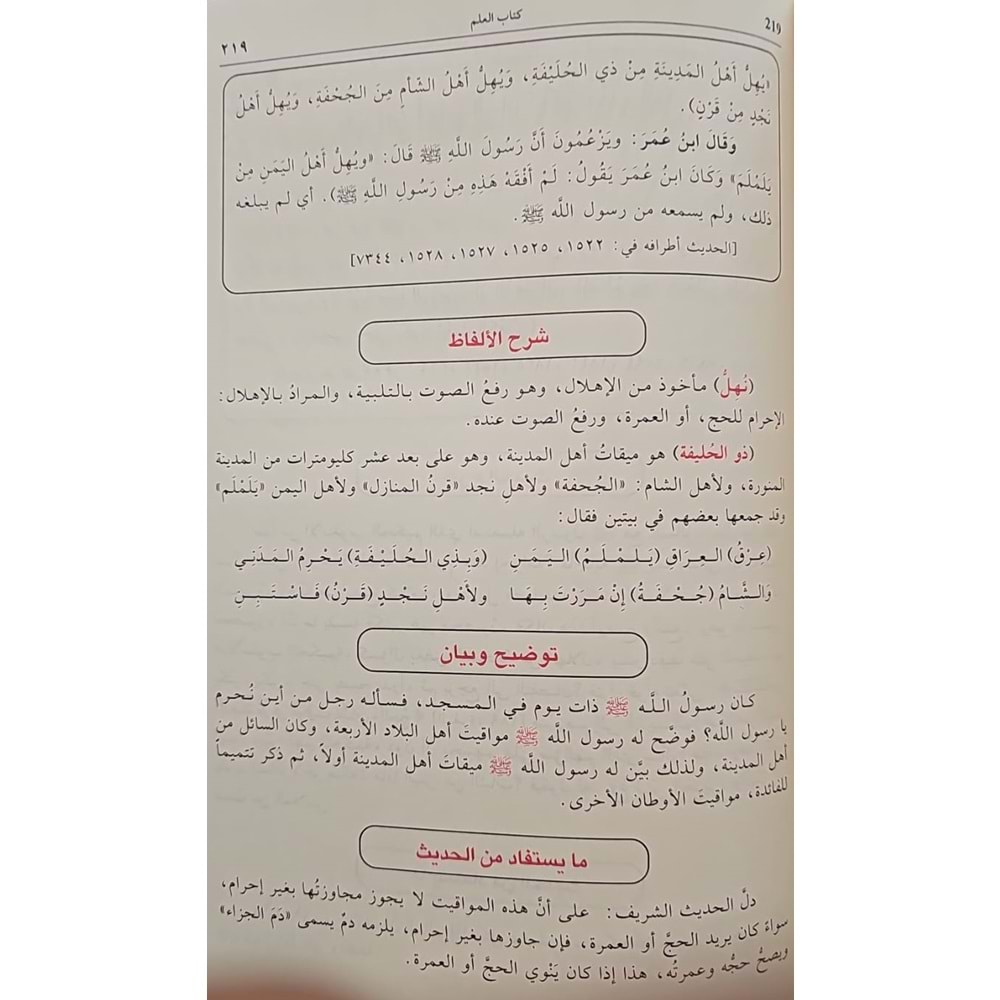 219 كتاب العلم ٢١٩
«يُهِلُّ أَهْلُ المَدِينَةِ مِنْ ذي الحُلَيْفَةِ، وَيُهِلُّ أَهْلُ الشَّأمِ مِنَ الجُحْفَةِ، وَيُهِلُّ أَهْلُ
نَجْدٍ مِنْ قَرْنٍ).
وَقَالَ ابنُ عُمَرَ: ويَزْعُمُونَ أَنَّ رَسُولَ اللَّهِ ﷺ قَالَ: «ويُهِلُّ أَهْلُ اليَمَنِ مِنْ
يَلَمْلَمَ» وَكَانَ ابنُ عُمَرَ يَقُولُ: لَمْ أَفْقَهْ هَذِهِ مِنْ رَسُولِ اللَّهِ ﷺ). أي لم يبلغه
ذلك، ولم يسمعه من رسول اللَّه ﷺ.
[الحديث أطرافه في: ١٥٢٢، ١٥٢٥، ١٥٢٧، ١٥٢٨، ٧٣٤٤]
شرح الألفاظ
(نُهِلُّ) مأخوذ من الإهلال، وهو رفعُ الصوت بالتلبية، والمرادُ بالإهلال:
الإحرام للحج، أو العمرة، ورفعُ الصوت عنده.
(ذو الحُليفة) هو ميقاتُ أهل المدينة، وهو على بعد عشر كليومترات من المدينة
المنورة، ولأهل الشام: «الجُحفة» ولأهلِ نجد «قرنُ المنازل» ولأهل اليمن «يَلَمْلَم»
وقد جمعها بعضهم في بيتين فقال:
(عِرْقُ) العِرَاقِ (يَلَمْلَمُ) اليَمَنِ (وَبِذِي الحُلَيْفَةِ) يَحْرِمُ المَدَنِي
وَالشَّامُ (جُحْفَةُ) إِنْ مَرَرْتَ بِهَا ولأَهْلِ نَجْدٍ (قَرْنُ) فَاسْتَبِنِ
توضيح وبيان
كان رسولُ اللَّه ﷺ ذات يوم في المسجد، فسأله رجل من أين نُحرم
يا رسول اللَّه؟ فوضَّح له رسول اللَّه ﷺ مواقيتَ أهل البلاد الأربعة، وكان السائل من
أهل المدينة، ولذلك بيَّن له رسول اللَّه ﷺ ميقاتَ أهل المدينة أولاً، ثم ذكر تتميماً
للفائدة، مواقيتَ الأوطان الأخرى.
ما يستفاد من الحديث
دلَّ الحديث الشريف: على أنَّ هذه المواقيت لا يجوز مجاوزتُها بغير إحرام،
سواءً كان يريد الحجَّ أو العمرة، فإن جاوزها بغير إحرام، يلزمه دمٌ يسمى «دَمَ الجزاء»
ويصحُّ حجُّه وعمرتُه، هذا إذا كان يَنْوي الحجَّ أو العمرة.